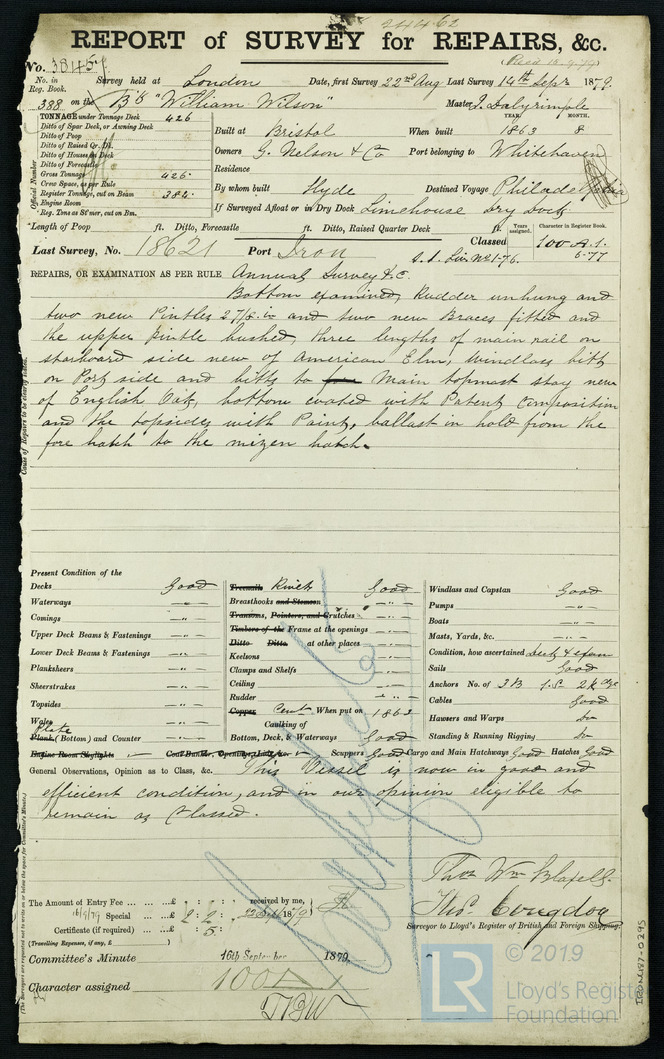 24462
REPORT of SURVEY for REPAIRS, &c.
No. 38457
(Recd 15.9.79)
No. in Reg. Book. Survey held at London Date, first Survey 22nd Aug Last Survey 14th Sepr 1879.
388 on the Bk "William Wilson" Master J. Dalyrimple
TONNAGE under Tonnage Deck 426
Ditto of Spar Deck, or Awning Deck
Ditto of Poop
Ditto of Raised Qr. Dk.
Ditto of Houses on Deck
Ditto of Forecastle
Gross Tonnage 426
Crew Space, as per Rule
Register Tonnage, cut on Beam 384
Engine Room
*Reg. Tons as St'mer, cut on Bm.
Official Number
Built at Bristol When built YEAR. 1863 MONTH. 8
Owners G. Nelson & Co Port belonging to Whitehaven
Residence
By whom built Hyde Destined Voyage Philadelphia
If Surveyed Afloat or in Dry Dock Limehouse Dry Dock
*Length of Poop ft. Ditto, Forecastle ft. Ditto, Raised Quarter Deck ft.
Years assigned. Character in Register Book.
Last Survey, No. 18621 Port Iron Classed 100 A.1.
S.S. Liv. No1-76. 6-77
REPAIRS, OR EXAMINATION AS PER RULE Annual Survey &c.
Bottom examined, Rudder unhung and
two new Pintles 2 7/8 in and two new Braces fitted and
the upper pintle bushed, three lengths of main rail on
starboard side new of American Elm, windlass bitt
on Port side and bitts to fore Main topmast stay new
of English Oak, bottom coated with Patent Composition
and the topsides with Paint, ballast in hold from the
fore hatch to the mizen hatch.
Cause of Repairs to be clearly stated.
Present Condition of the
Decks Good
Waterways -"-
Comings -"-
Upper Deck Beams & Fastenings -"-
Lower Deck Beams & Fastenings -"-
Planksheers -"-
Sheerstrakes -"-
Topsides -"-
Wales -"-
Plate
Plank (Bottom) and Counter -"-
Engine Room Skylights Coal Bunker, Openings, Lids, &c.
Treenails Rivets Good
Breasthooks and Stemson -"-
Transoms, Pointers, and Crutches -"-
Timbers of the Frame at the openings -"-
Ditto Ditto. at other places -"-
Keelsons -"-
Clamps and Shelfs -"-
Ceiling -"-
Rudder -"-
Copper Cemt When put on 1863
Caulking of
Bottom, Deck, & Waterways Good
Scuppers Good Cargo and Main Hatchways Good Hatches Good
Windlass and Capstan Good
Pumps -"-
Boats -"-
Masts, Yards, &c. -"-
Condition, how ascertained
Sails Good
Anchors No. of 3 B 1.S. 2 Kdge
Cables Good
Hawsers and Warps Do
Standing & Running Rigging Do
General Observations, Opinion as to Class, &c. This Vessel is now in good and
efficient condition, and in our opinion eligible to
remain as Classed.
Thos Wm Blafell.
Thos. Congdon
Surveyor to Lloyd's Register of British and Foreign Shipping.
The Amount of Entry Fee ... £ : : received by me,
16/9/79 Special ... £ 2 : 2 : 1879
Certificate (if required) .. £ : 5 :
(Travelling Expenses, if any, £ )
Committee's Minute 16th September 1879.
Character assigned 100A
TBW
(The Surveyors are requested not to write on or below the space for Committee's Minute.)
© 2019
LR
Lloyd's Register
Foundation
IRON187-0295